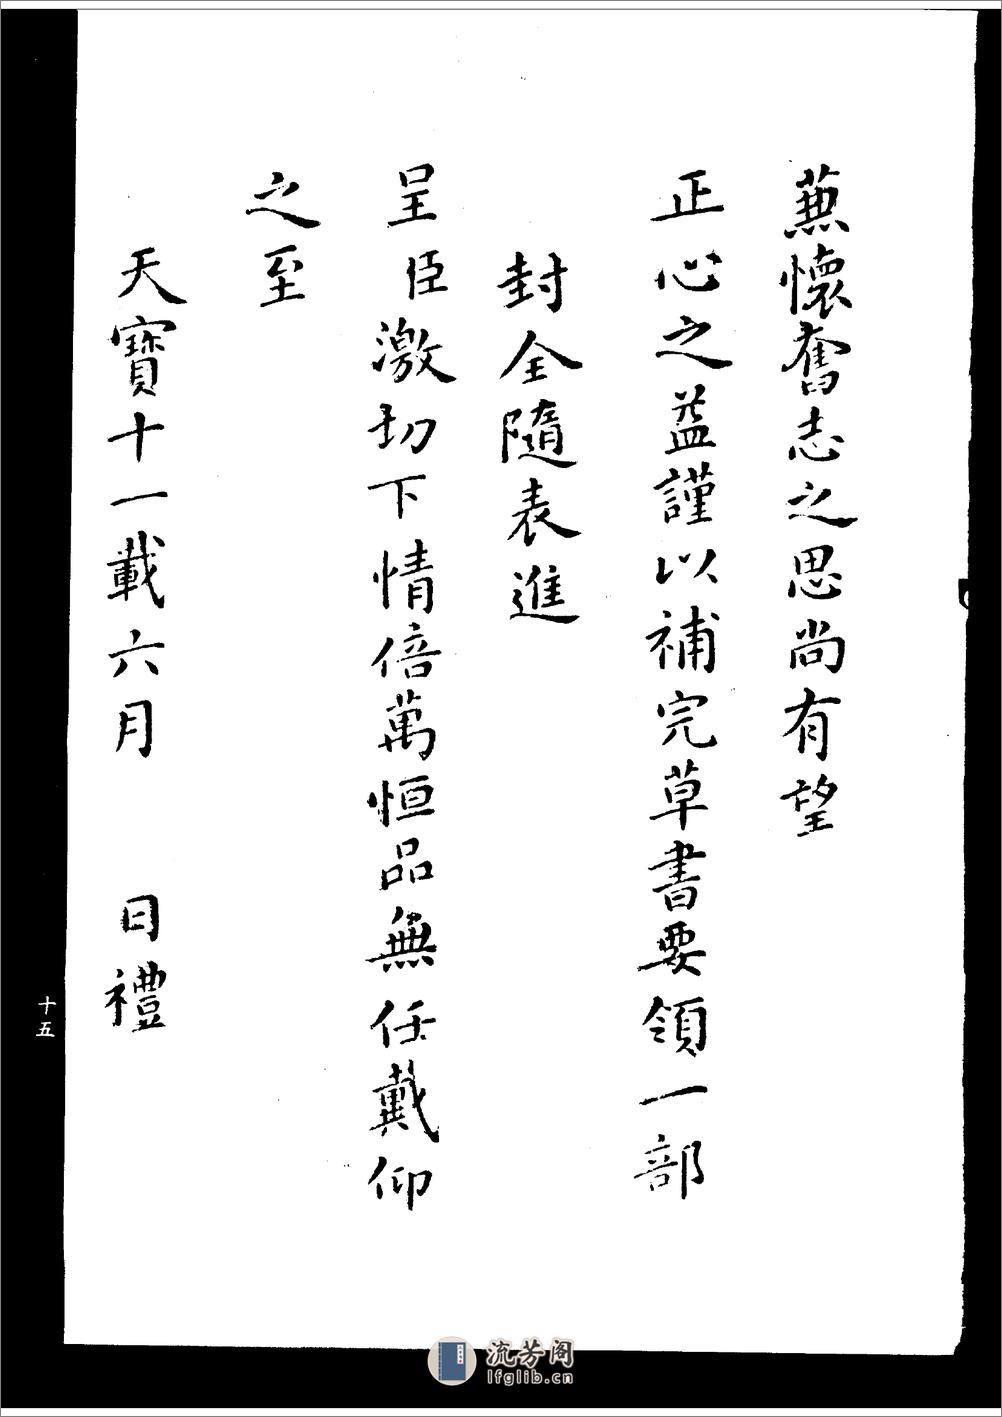 蕪懷奮志之思尚有望
正心之益謹以補完草書要領一部
封全隨表進
呈臣激切下情倍萬恒品無任戴仰
之至
天寶十一載六月 日禮
十五
流芳阁
lfglib.cn